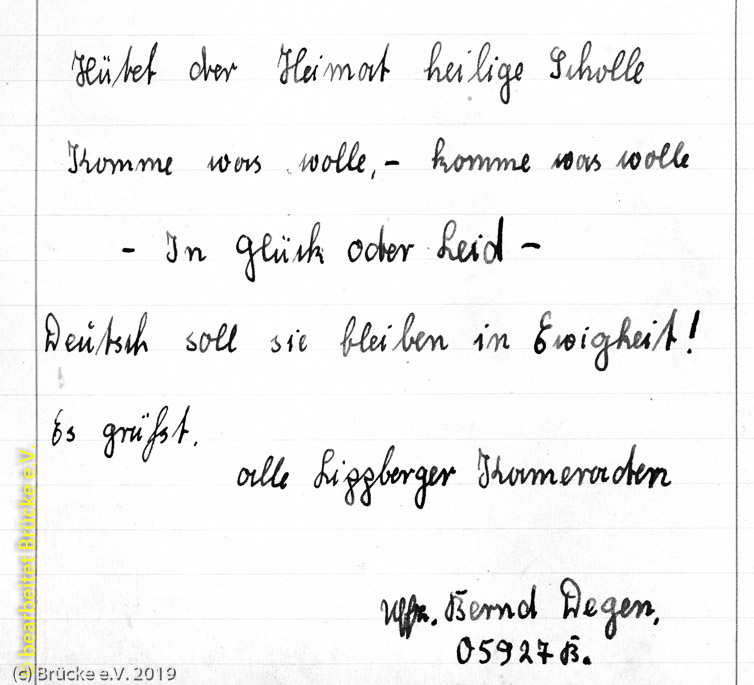 Hütet der Heimat heilige Scholle
Komme was wolle, - komme was wolle
- In Glück oder Leid -
Deutsch soll sie bleiben in Ewigkeit!
Es grüßt.
alle Lippberger Kameraden
Uffz. Bernd Degen,
05927 B.
bearbeitet Brücke e.V.
(c) Brücke e.V. 2019